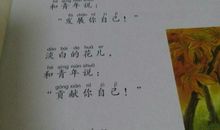 和青年说：
fā zhǎn nǐ zì jǐ
“发展你自己！”
dàn bái de huā er
淡白的花儿，
hé qīng nián shuō
和青年说：
gòng xiàn nǐ zì jǐ
“贡献你自己！”